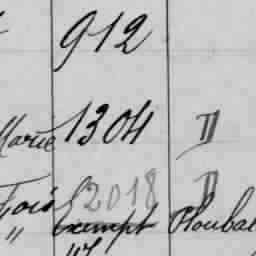 912
Marie 1304 D
Fois 2018 D
" exempt Ploubal